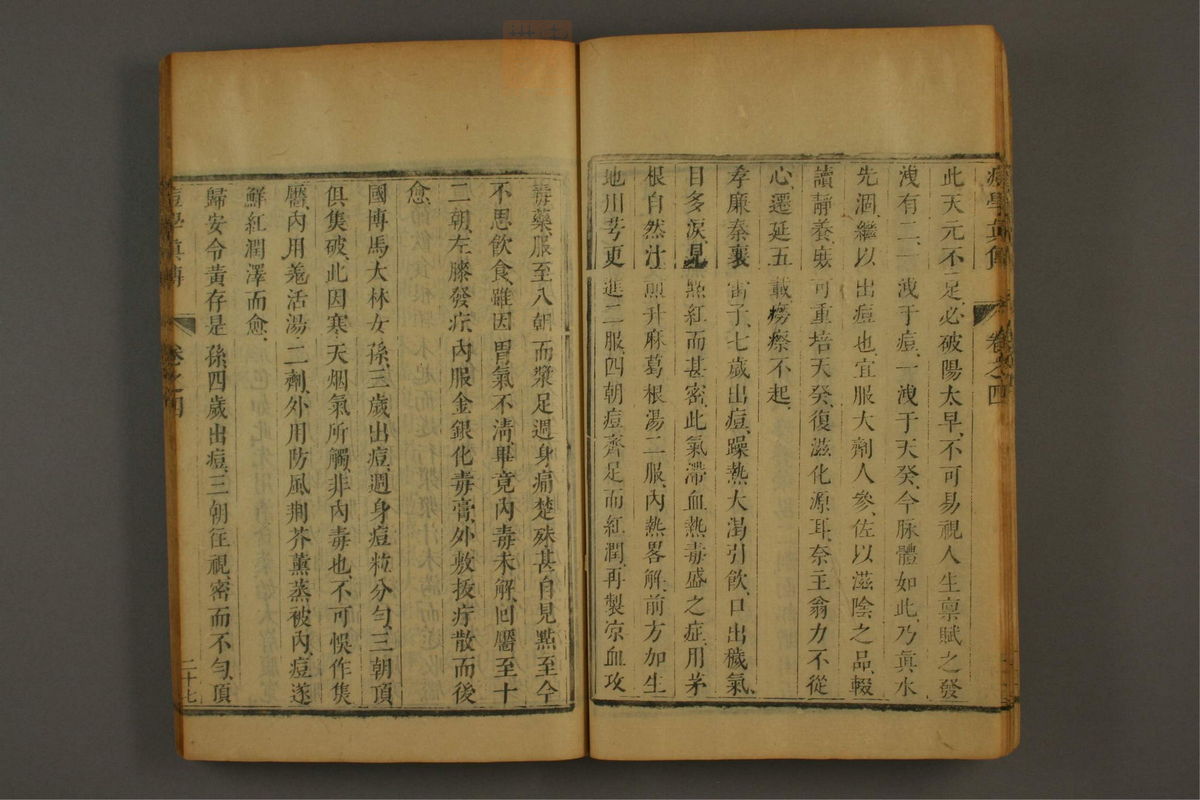 此天元不足必破陽太早不可易視人生禀賦之發
洩有二一洩于痘一洩于天癸今脉體如此乃眞水
先涸繼以出痘也宜服大劑人參佐以滋陰之品輟
讀靜養庶可重培天癸復滋化源耳奈主翁力不從
心遷延五載癆瘵不起
孝廉秦襄 子七歲出痘躁熱大渴引飲口出穢氣
目多淚見㸃紅而甚密此氣滯血熱毒盛之症用茅
根自然汁煎升麻葛根湯二服內熱畧解前方加生
地川芎更進二服四朝痘齊足而紅潤再製凉血攻
毒藥服至八朝而漿足週身痛楚殊甚自見㸃至今
不思飲食雖因胃氣不淸畢竟內毒未解回靨至十
二朝左膝發疔內服金銀化毒膏外敷拔疔散而後
愈
國博馬大林女孫三歲出痘週身痘粒分勻三朝頂
俱隻破此因寒天烟氣所觸非內毒也不可悞作隻
靨內用羗活湯二劑外用防風荆芥薰蒸被內痘遂
鮮紅潤澤而愈
歸安令黃存是孫四歲出痘三朝徃視密而不勻頂
痘學眞傳 卷之四 二十七